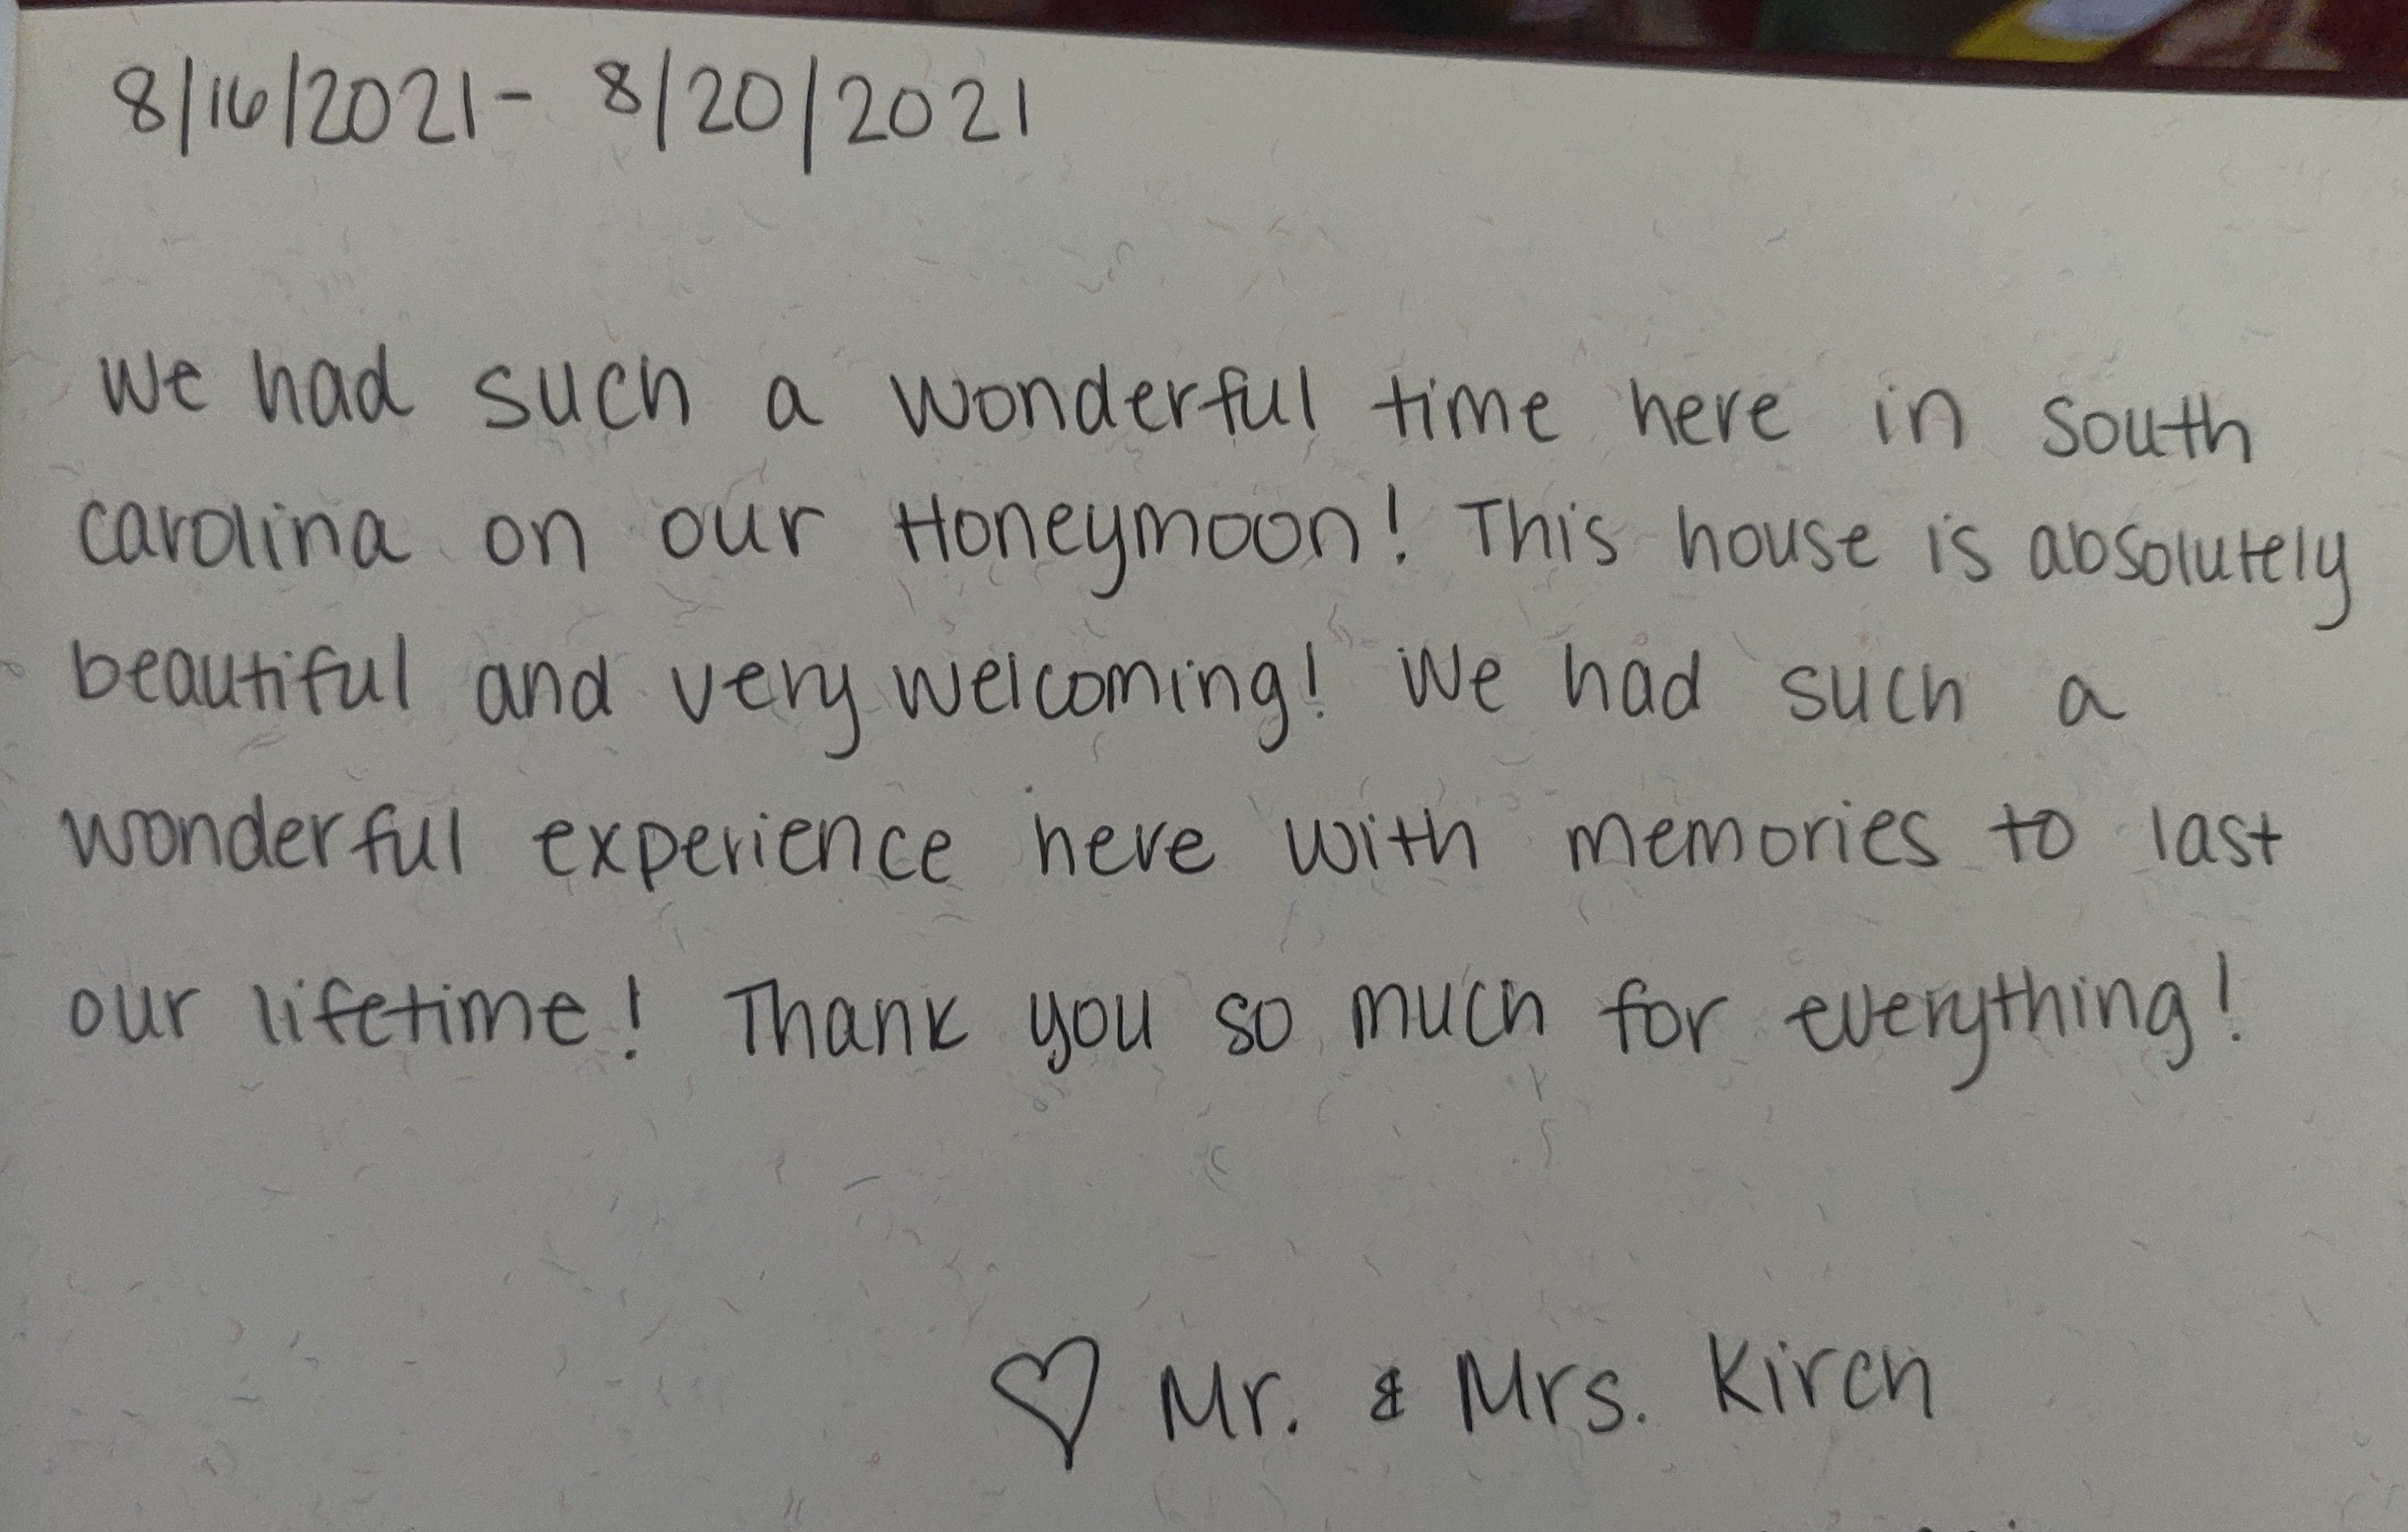 8/16/2021- 8/20/2021
We had such a wonderful time here in south
carolina on our Honeymoon! This house is absolutely
beautiful and very welcoming! We had such a
wonderful experience here with memories to last
our lifetime! Thank you so much for everything!
♡ Mr. & Mrs. Kirch